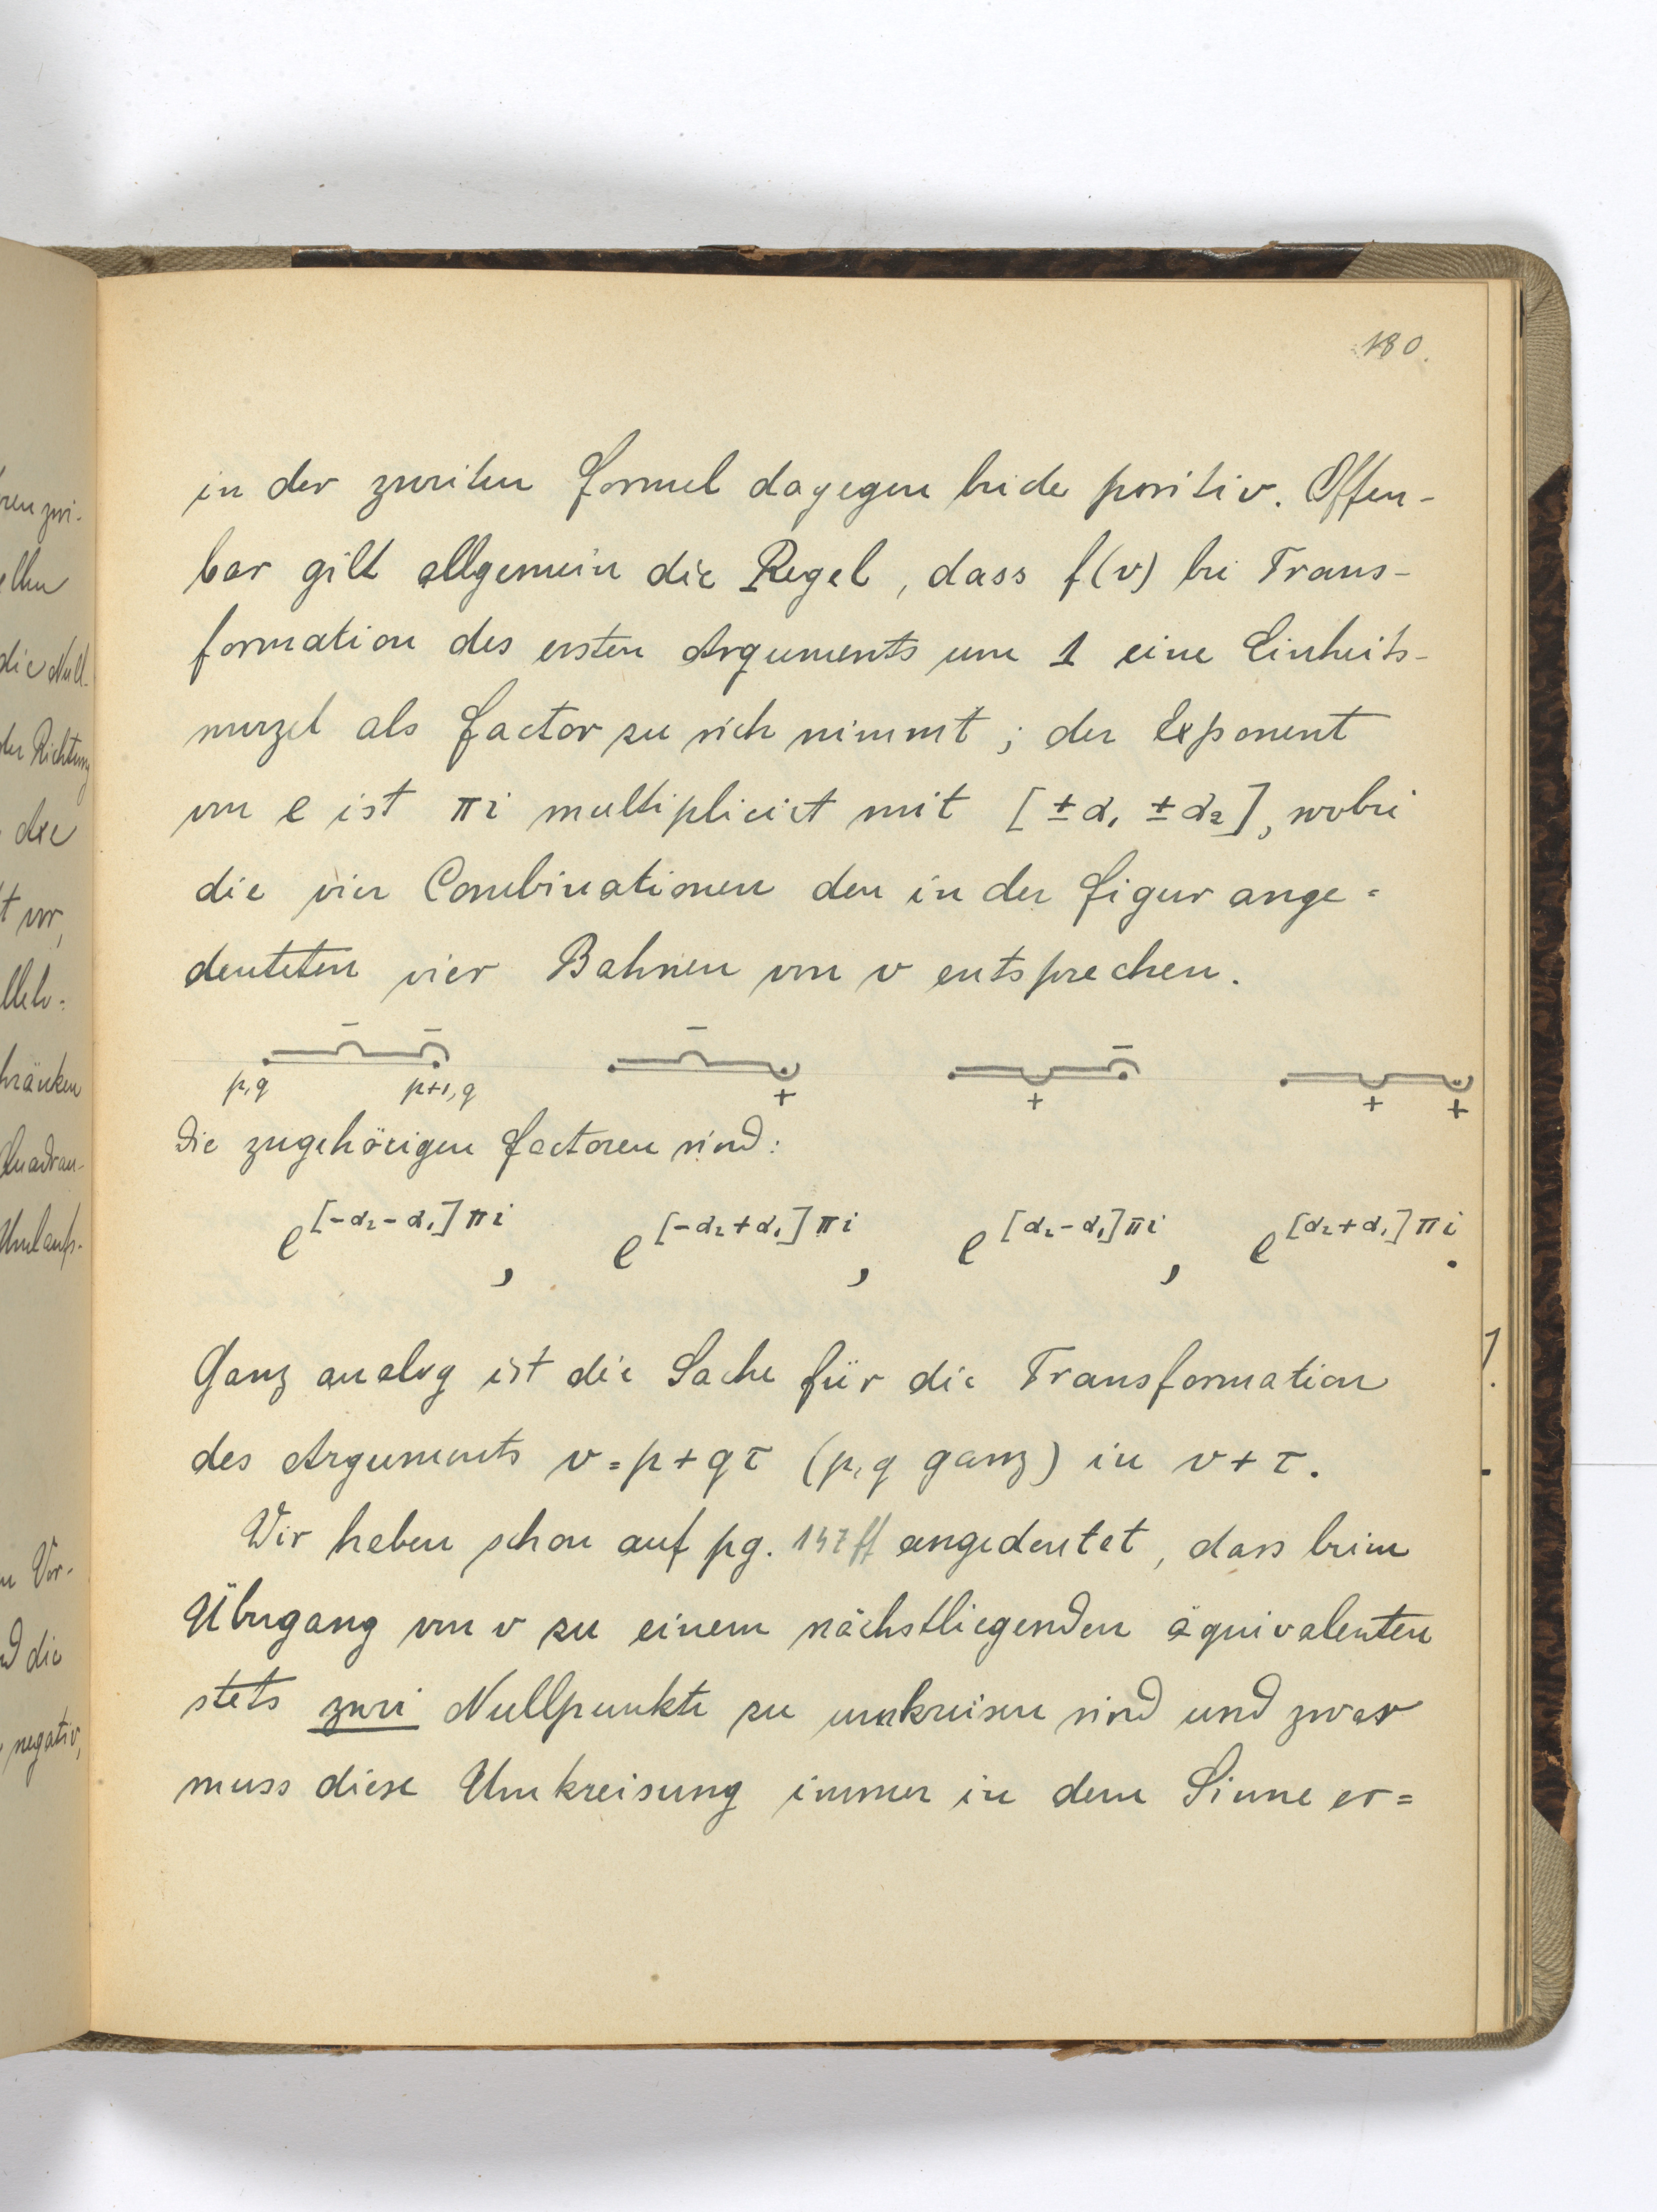 180.
in der zweiten Formel dagegen beide positiv. Offen-
bar gilt allgemein die Regel, dass f(v) bei Trans-
formation des ersten Arguments um 1 eine Einheits-
wurzel als Factor zu sich nimmt; der Exponent
von e ist πi multiplicirt mit [±α₁ ±α₂], wobei
die vier Combinationen den in der Figur ange=
deuteten vier Bahnen von v entsprechen.
– – – –
p,q p+1,q + + + +
Die zugehörigen Factoren sind:
e^[-α₂-α₁]πi, e^[-α₂+α₁]πi, e^[α₂-α₁]πi, e^[α₂+α₁]πi.
Ganz analog ist die Sache für die Transformation
des Arguments v=p+qτ (p,q ganz) in v+τ.
Wir haben schon auf pg. 147ff angedeutet, dass beim
Übergang von v zu einem nächstliegenden äquivalenten
stets zwei Nullpunkte zu umkreisen sind und zwar
muss diese Umkreisung immer in dem Sinne er=